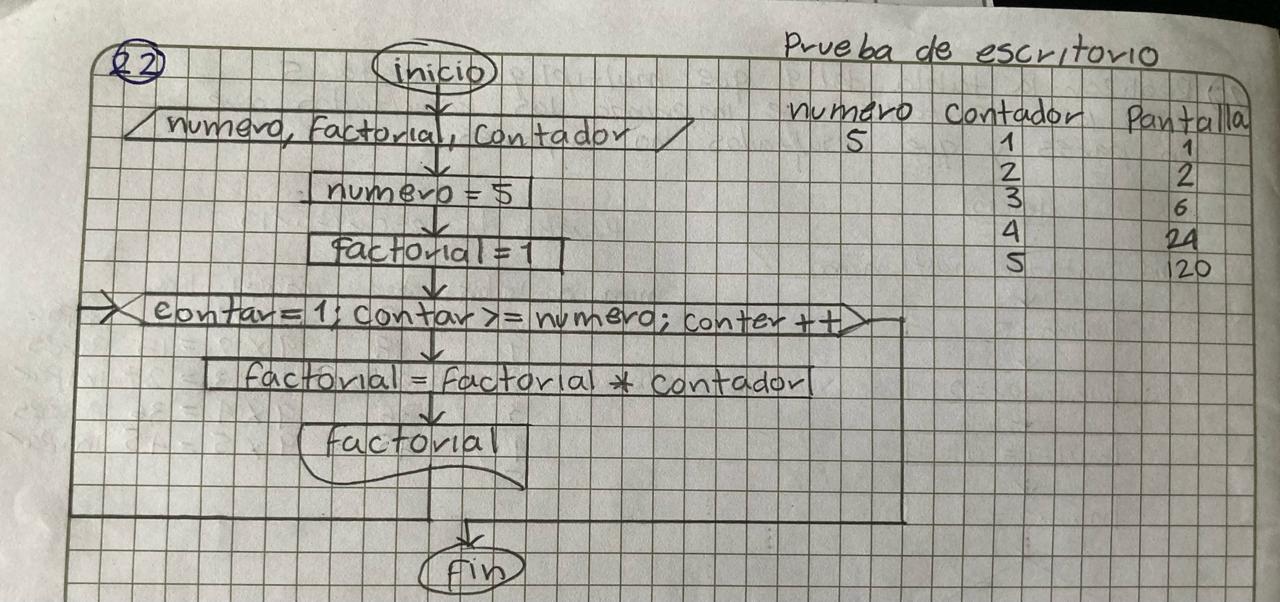 22
inicio
numero, factorial, contador
numero = 5
factorial = 1
contar = 1; contar >= numero; conter ++
factorial = factorial * contador
factorial
fin
Prueba de escritorio
numero contador Pantalla
5 1 1
2 2
3 6
4 24
5 120